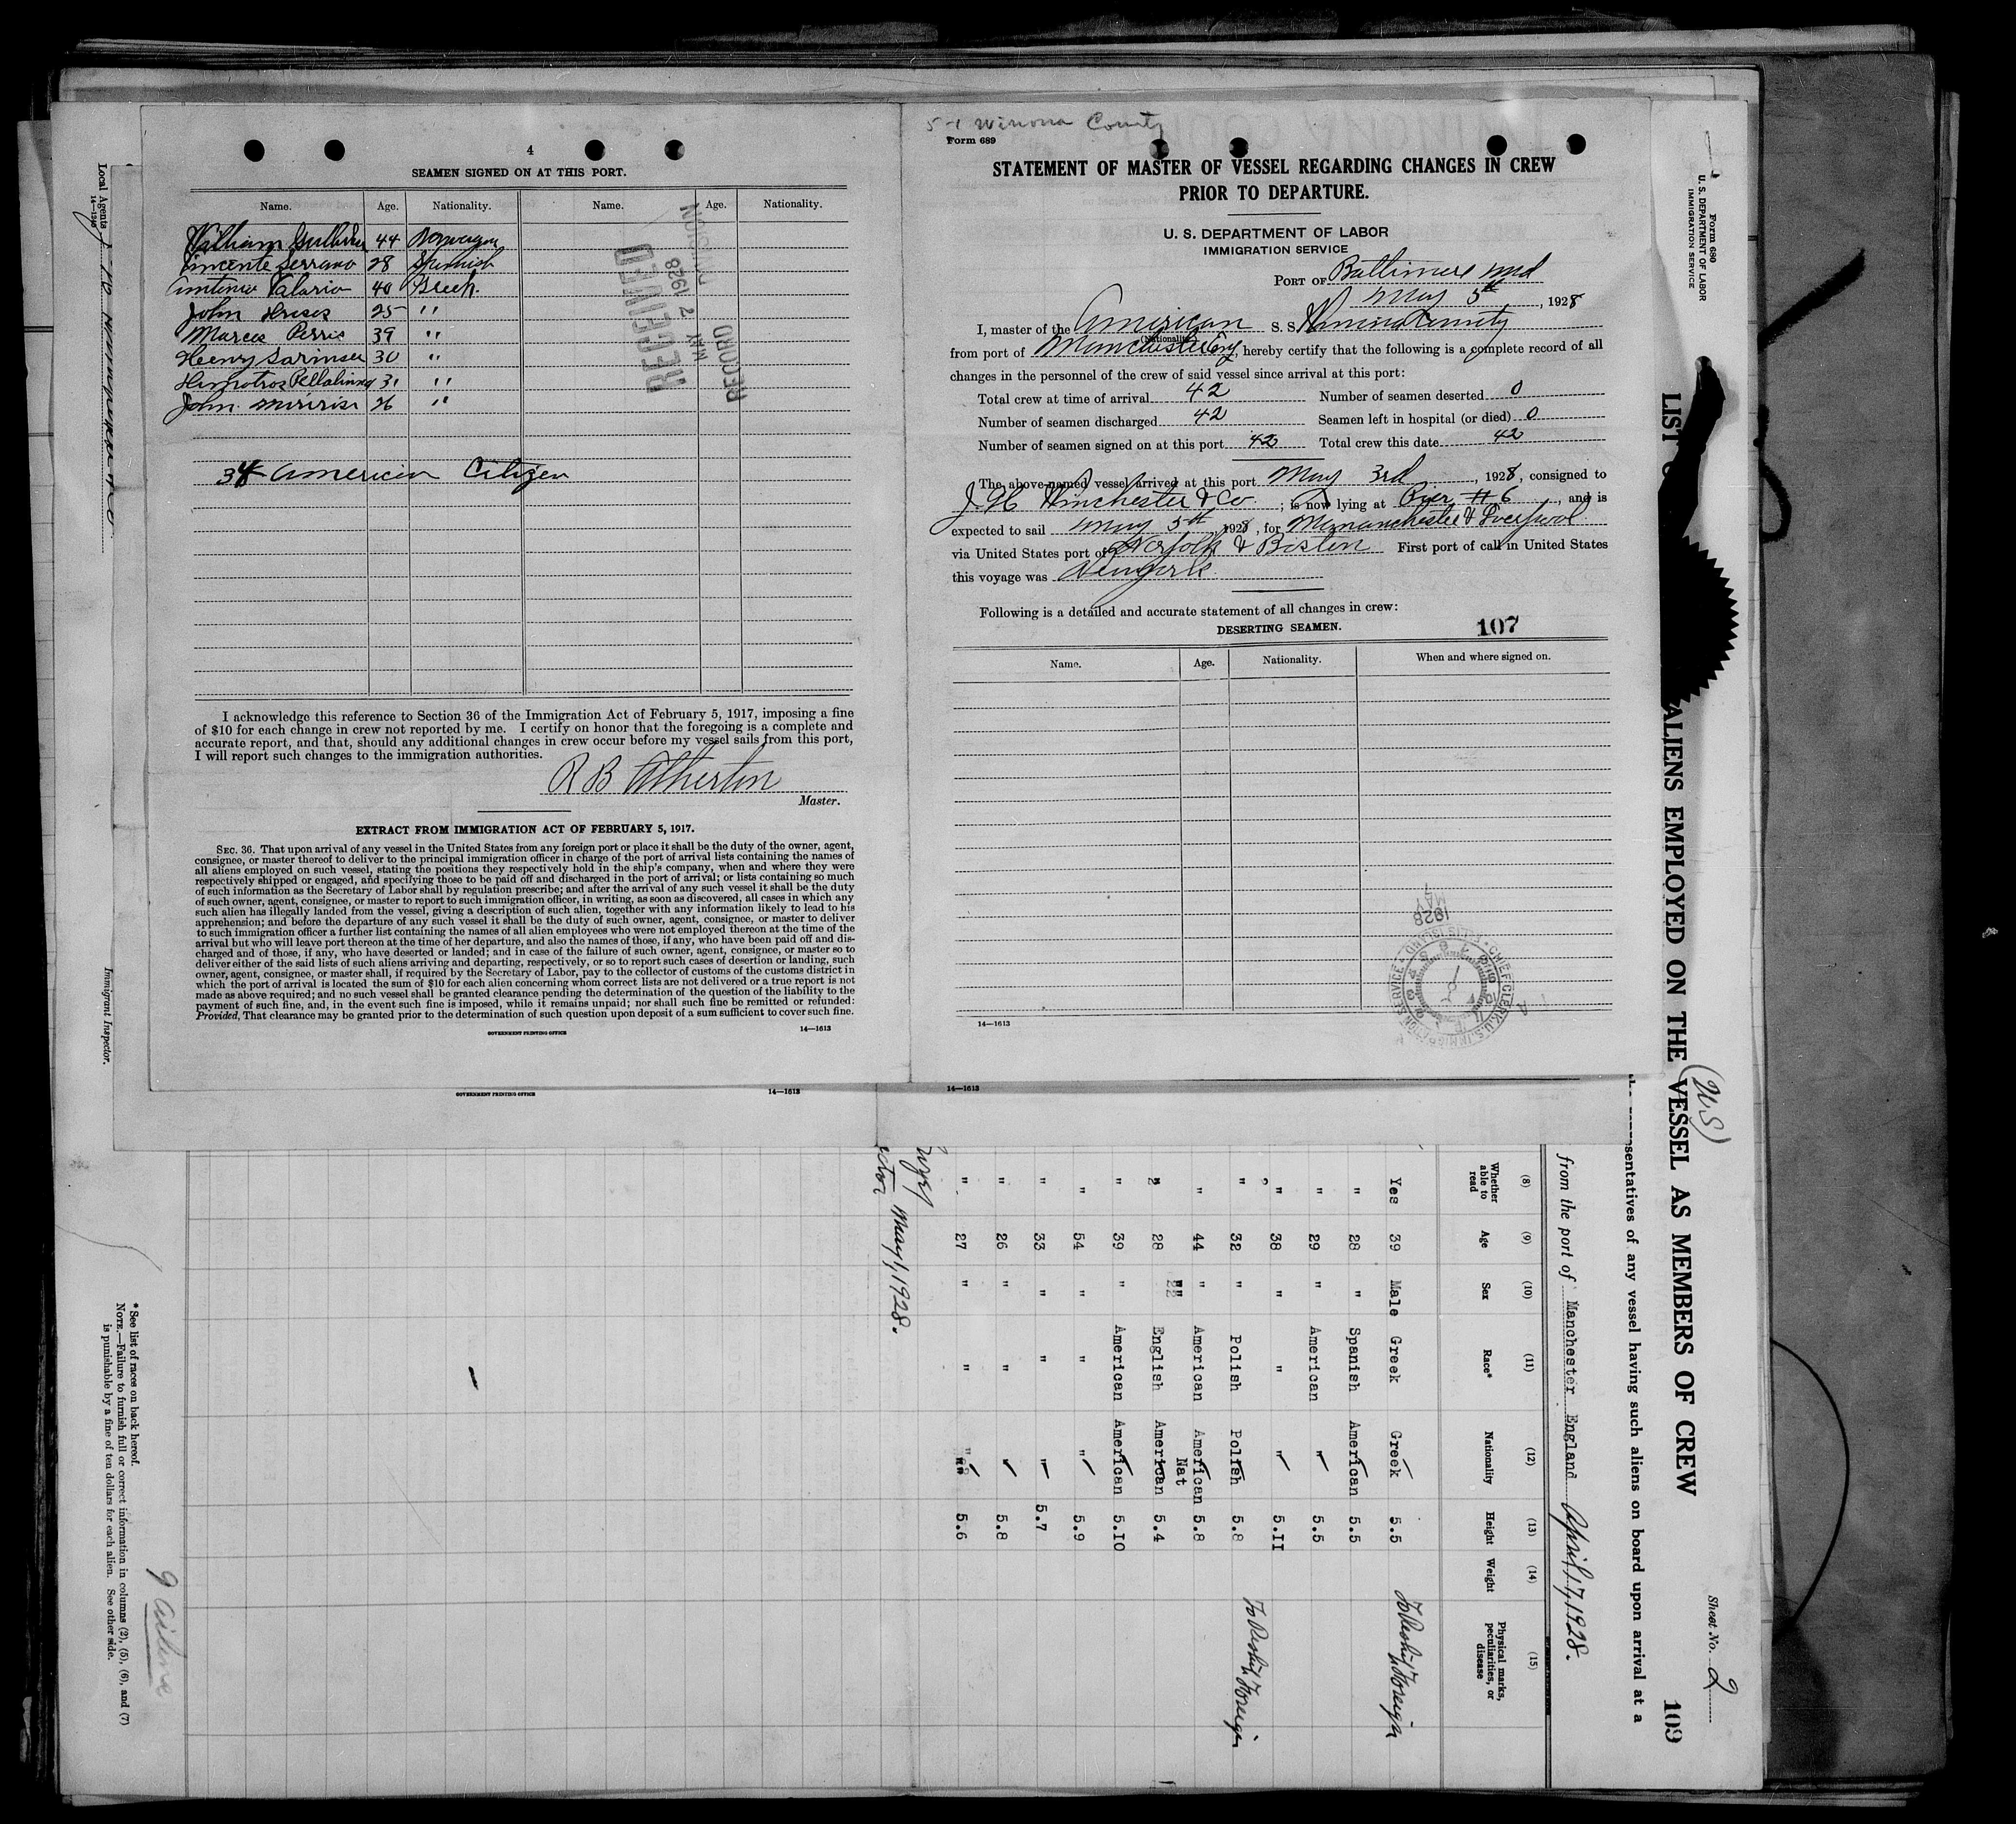 4
SEAMEN SIGNED ON AT THIS PORT.
Name. Age. Nationality. Name. Age. Nationality.
William 44 Norwegian
Vincente Serrano 28 Spanish
Antonio Valario 40 Greek.
John 25 "
Marcos Perris 39 "
Henry 30 "
31 "
John 26 "
34 American Citizen
RECEIVED
MAY 2 1928
RECORD DIVISION
I acknowledge this reference to Section 36 of the Immigration Act of February 5, 1917, imposing a fine
of $10 for each change in crew not reported by me. I certify on honor that the foregoing is a complete and
accurate report, and that, should any additional changes in crew occur before my vessel sails from this port,
I will report such changes to the immigration authorities.
R B Atherton
Master.
EXTRACT FROM IMMIGRATION ACT OF FEBRUARY 5, 1917.
SEC. 36. That upon arrival of any vessel in the United States from any foreign port or place it shall be the duty of the owner, agent,
consignee, or master thereof to deliver to the principal immigration officer in charge of the port of arrival lists containing the names of
all aliens employed on such vessel, stating the positions they respectively hold in the ship's company, when and where they were
respectively shipped or engaged, and specifying those to be paid off and discharged in the port of arrival; or lists containing so much
of such information as the Secretary of Labor shall by regulation prescribe; and after the arrival of any such vessel it shall be the duty
of such owner, agent, consignee, or master to report to such immigration officer, in writing, as soon as discovered, all cases in which any
such alien has illegally landed from the vessel, giving a description of such alien, together with any information likely to lead to his
apprehension; and before the departure of any such vessel it shall be the duty of such owner, agent, consignee, or master to deliver
to such immigration officer a further list containing the names of all alien employees who were not employed thereon at the time of the
arrival but who will leave port thereon at the time of her departure, and also the names of those, if any, who have been paid off and dis-
charged and of those, if any, who have deserted or landed; and in case of the failure of such owner, agent, consignee, or master so to
deliver either of the said lists of such aliens arriving and departing, respectively, or so to report such cases of desertion or landing, such
owner, agent, consignee, or master shall, if required by the Secretary of Labor, pay to the collector of customs of the customs district in
which the port of arrival is located the sum of $10 for each alien concerning whom correct lists are not delivered or a true report is not
made as above required; and no such vessel shall be granted clearance pending the determination of the question of the liability to the
payment of such fine, and, in the event such fine is imposed, while it remains unpaid; nor shall such fine be remitted or refunded:
Provided, That clearance may be granted prior to the determination of such question upon deposit of a sum sufficient to cover such fine.
GOVERNMENT PRINTING OFFICE 14—1613
GOVERNMENT PRINTING OFFICE 14—1613
5-1 Winona County
Form 689
STATEMENT OF MASTER OF VESSEL REGARDING CHANGES IN CREW
PRIOR TO DEPARTURE.
U. S. DEPARTMENT OF LABOR
IMMIGRATION SERVICE
PORT OF Baltimore Md
May 5th, 1928
I, master of the American S. S. Winona County
(Nationality)
from port of Manchester Eng, hereby certify that the following is a complete record of all
changes in the personnel of the crew of said vessel since arrival at this port:
Total crew at time of arrival 42 Number of seamen deserted 0
Number of seamen discharged 42 Seamen left in hospital (or died) 0
Number of seamen signed on at this port 42 Total crew this date 42
The above-named vessel arrived at this port May 3rd, 1928, consigned to
J. H. Winchester & Co; is now lying at Pier # 6, and is
expected to sail May 5th 1928, for Manchester & Liverpool
via United States port of Norfolk & Boston First port of call in United States
this voyage was Newyork
Following is a detailed and accurate statement of all changes in crew:
DESERTING SEAMEN. 107
Name. Age. Nationality. When and where signed on.
1928
MAY
7
CHIEF CLERK, U. S. IMMIGRATION SERVICE
14—1613
14—1613
Form 680
U. S. DEPARTMENT OF LABOR
IMMIGRATION SERVICE
LIST
ALIENS EMPLOYED ON THE VESSEL AS MEMBERS OF CREW
(U.S)
Sheet No. 2
109
sentatives of any vessel having such aliens on board upon arrival at a
from the port of Manchester England April, 17, 1928.
(8) (9) (10) (11) (12) (13) (14) (15)
Whether able to read Age Sex Race* Nationality Height Weight Physical marks, peculiarities, or disease
Yes 39 Male Greek Greek 5.5 To Reship Foreign
" 28 " Spanish American 5.5
" 29 " American " 5.5
" 38 " " " 5.11
" 32 " Polish Polish 5.8 To Reship Foreign
" 44 " American American 5.8
Nat
" 28 " English American 5.4
" 39 " American American 5.10
" 54 " " " 5.9
" 33 " " " 5.7
" 26 " " " 5.8
" 27 " " " 5.6
May 1, 1928.
Local Agents
14—1240
Immigrant Inspector.
* See list of races on back hereof.
NOTE.—Failure to furnish full or correct information in columns (2), (5), (6), and (7)
is punishable by a fine of ten dollars for each alien. See other side.
9 aliens